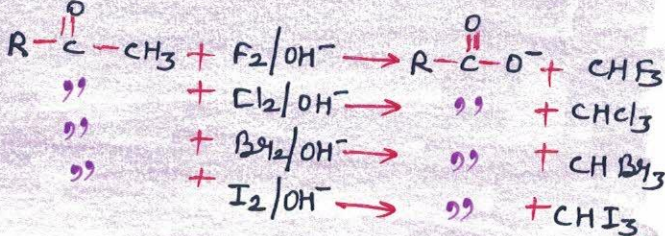 O O
R-C-CH3 + F2/OH- → R-C-O- + CHF3
" + Cl2/OH- → " + CHCl3
" + Br2/OH- → " + CHBr3
" + I2/OH- → " + CHI3